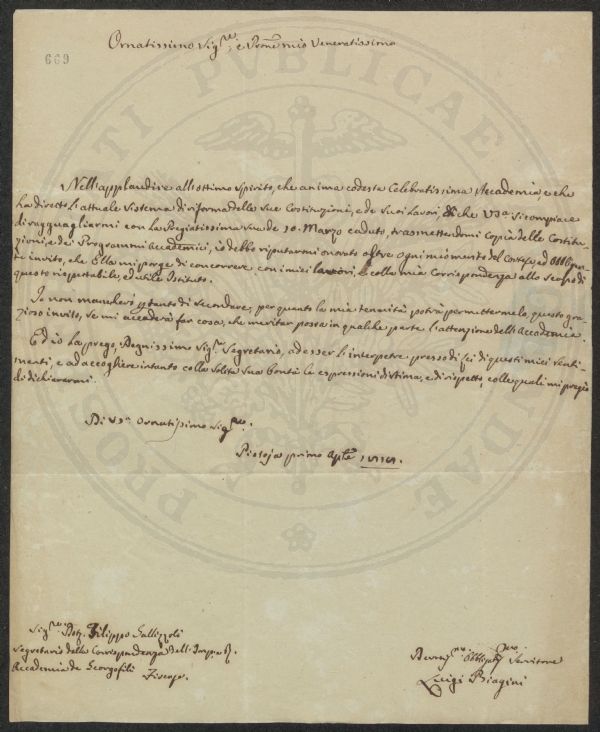 Ornatissimo Sig.re, e Prone mio Veneratissimo
669
Nell'applaudire all'ottimo Spirito, che anima codesta Celebratissima Accademia, e che
ha diretto l'attuale Sistema di riforma delle Sue Costituzioni, e de' Suoi Lavori, che VS.a si compiace
di ragguagliarmi con La Pregiatissima Sua de' 30. Marzo caduto, trasmettendomi Copia delle Costitu-
zioni, e dei Programmi Accademici, io debbo riputarmi onorato oltre ogni mio merito del Cortese, ed obbligan-
te invito, che Ella mi porge di concorrere con i miei lavori, e colla mia Corrispondenza allo scopo di
questo rispettabile, ed utile Istituto.
Io non mancherò pertanto di Secondare, per quanto la mia tenuità potrà permettermelo, questo gra-
zioso invito, se mi accaderà far cosa, che meritar possa in qualche parte l'attenzione dell'Accademia.
Ed io La prego, Degnissimo Sig.r Segretario, ad esser l'interpetre presso di Lei di questi miei senti-
menti, e ad accogliere intanto colla Solita Sua bontà le espressioni di stima, e di rispetto, colle quali mi pregio
di dichiararmi.
Di VS.a Ornatissimo Sig.re
Pistoja primo Aple
Sig.re Dott. Filippo Gallizzoli
Segretario della Corrispondenza dell'Imp. e R.
Accademia de Georgofili
Firenze.
Obbligat. Servitore
Luigi Biagini
PROS TI PVBLICAE DAE